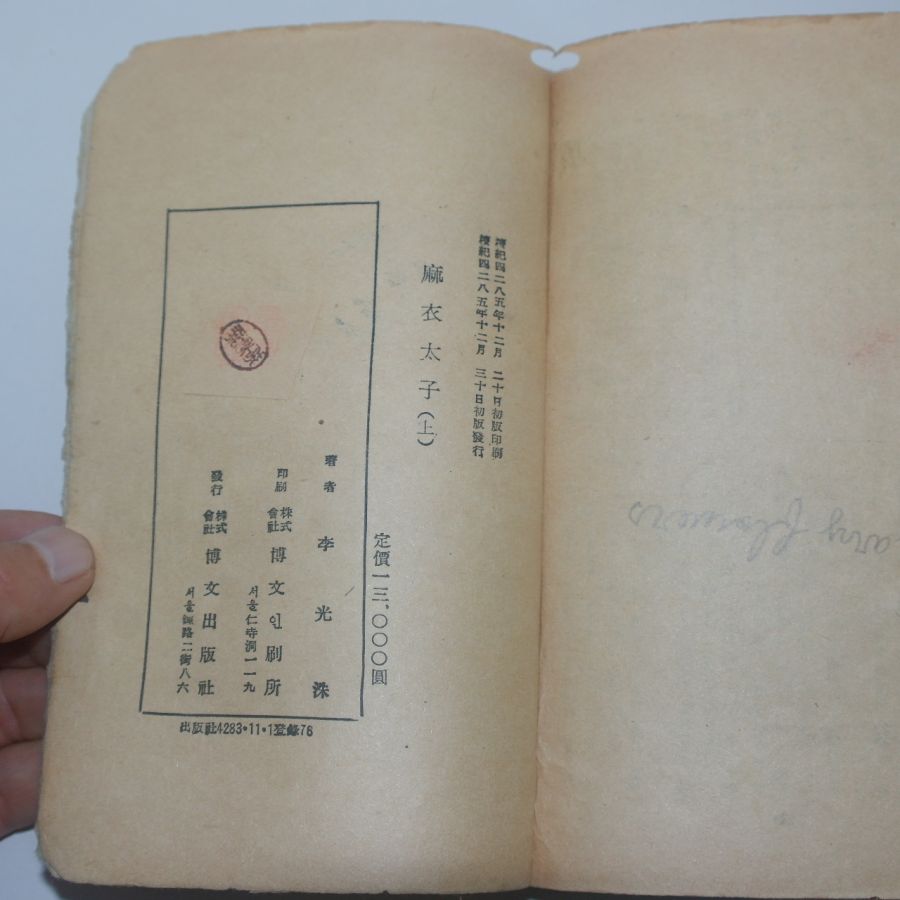 檀紀四二八五年十二月 二十日初版印刷
檀紀四二八五年十二月 三十日初版發行
麻衣太子(上)
定價一三,〇〇〇圓
著者 李光洙
印刷 株式會社 博文인刷所
서울仁寺洞一一九
發行 株式會社 博文出版社
서울鍾路二街八六
出版社4283·11·1登錄76
any flowers